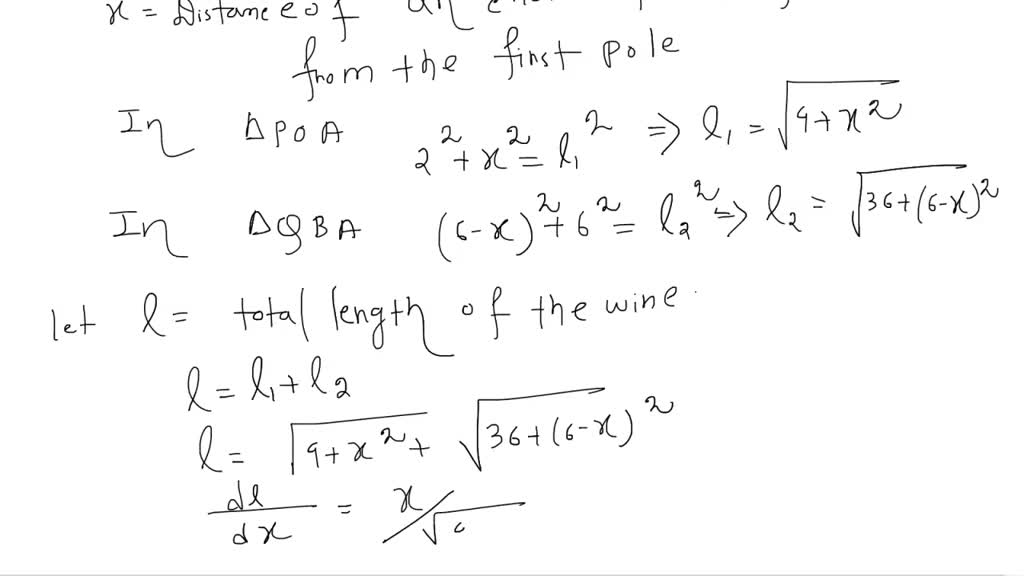 x = Distance of an
from the first pole
In ΔPOA 2² + x² = l₁² ⇒ l₁ = √9+x²
In ΔQBA (6-x)² + 6² = l₂² ⇒ l₂ = √36+(6-x)²
let l = total length of the wire.
l = l₁ + l₂
l = √9+x² + √36+(6-x)²
dl/dx = x/√